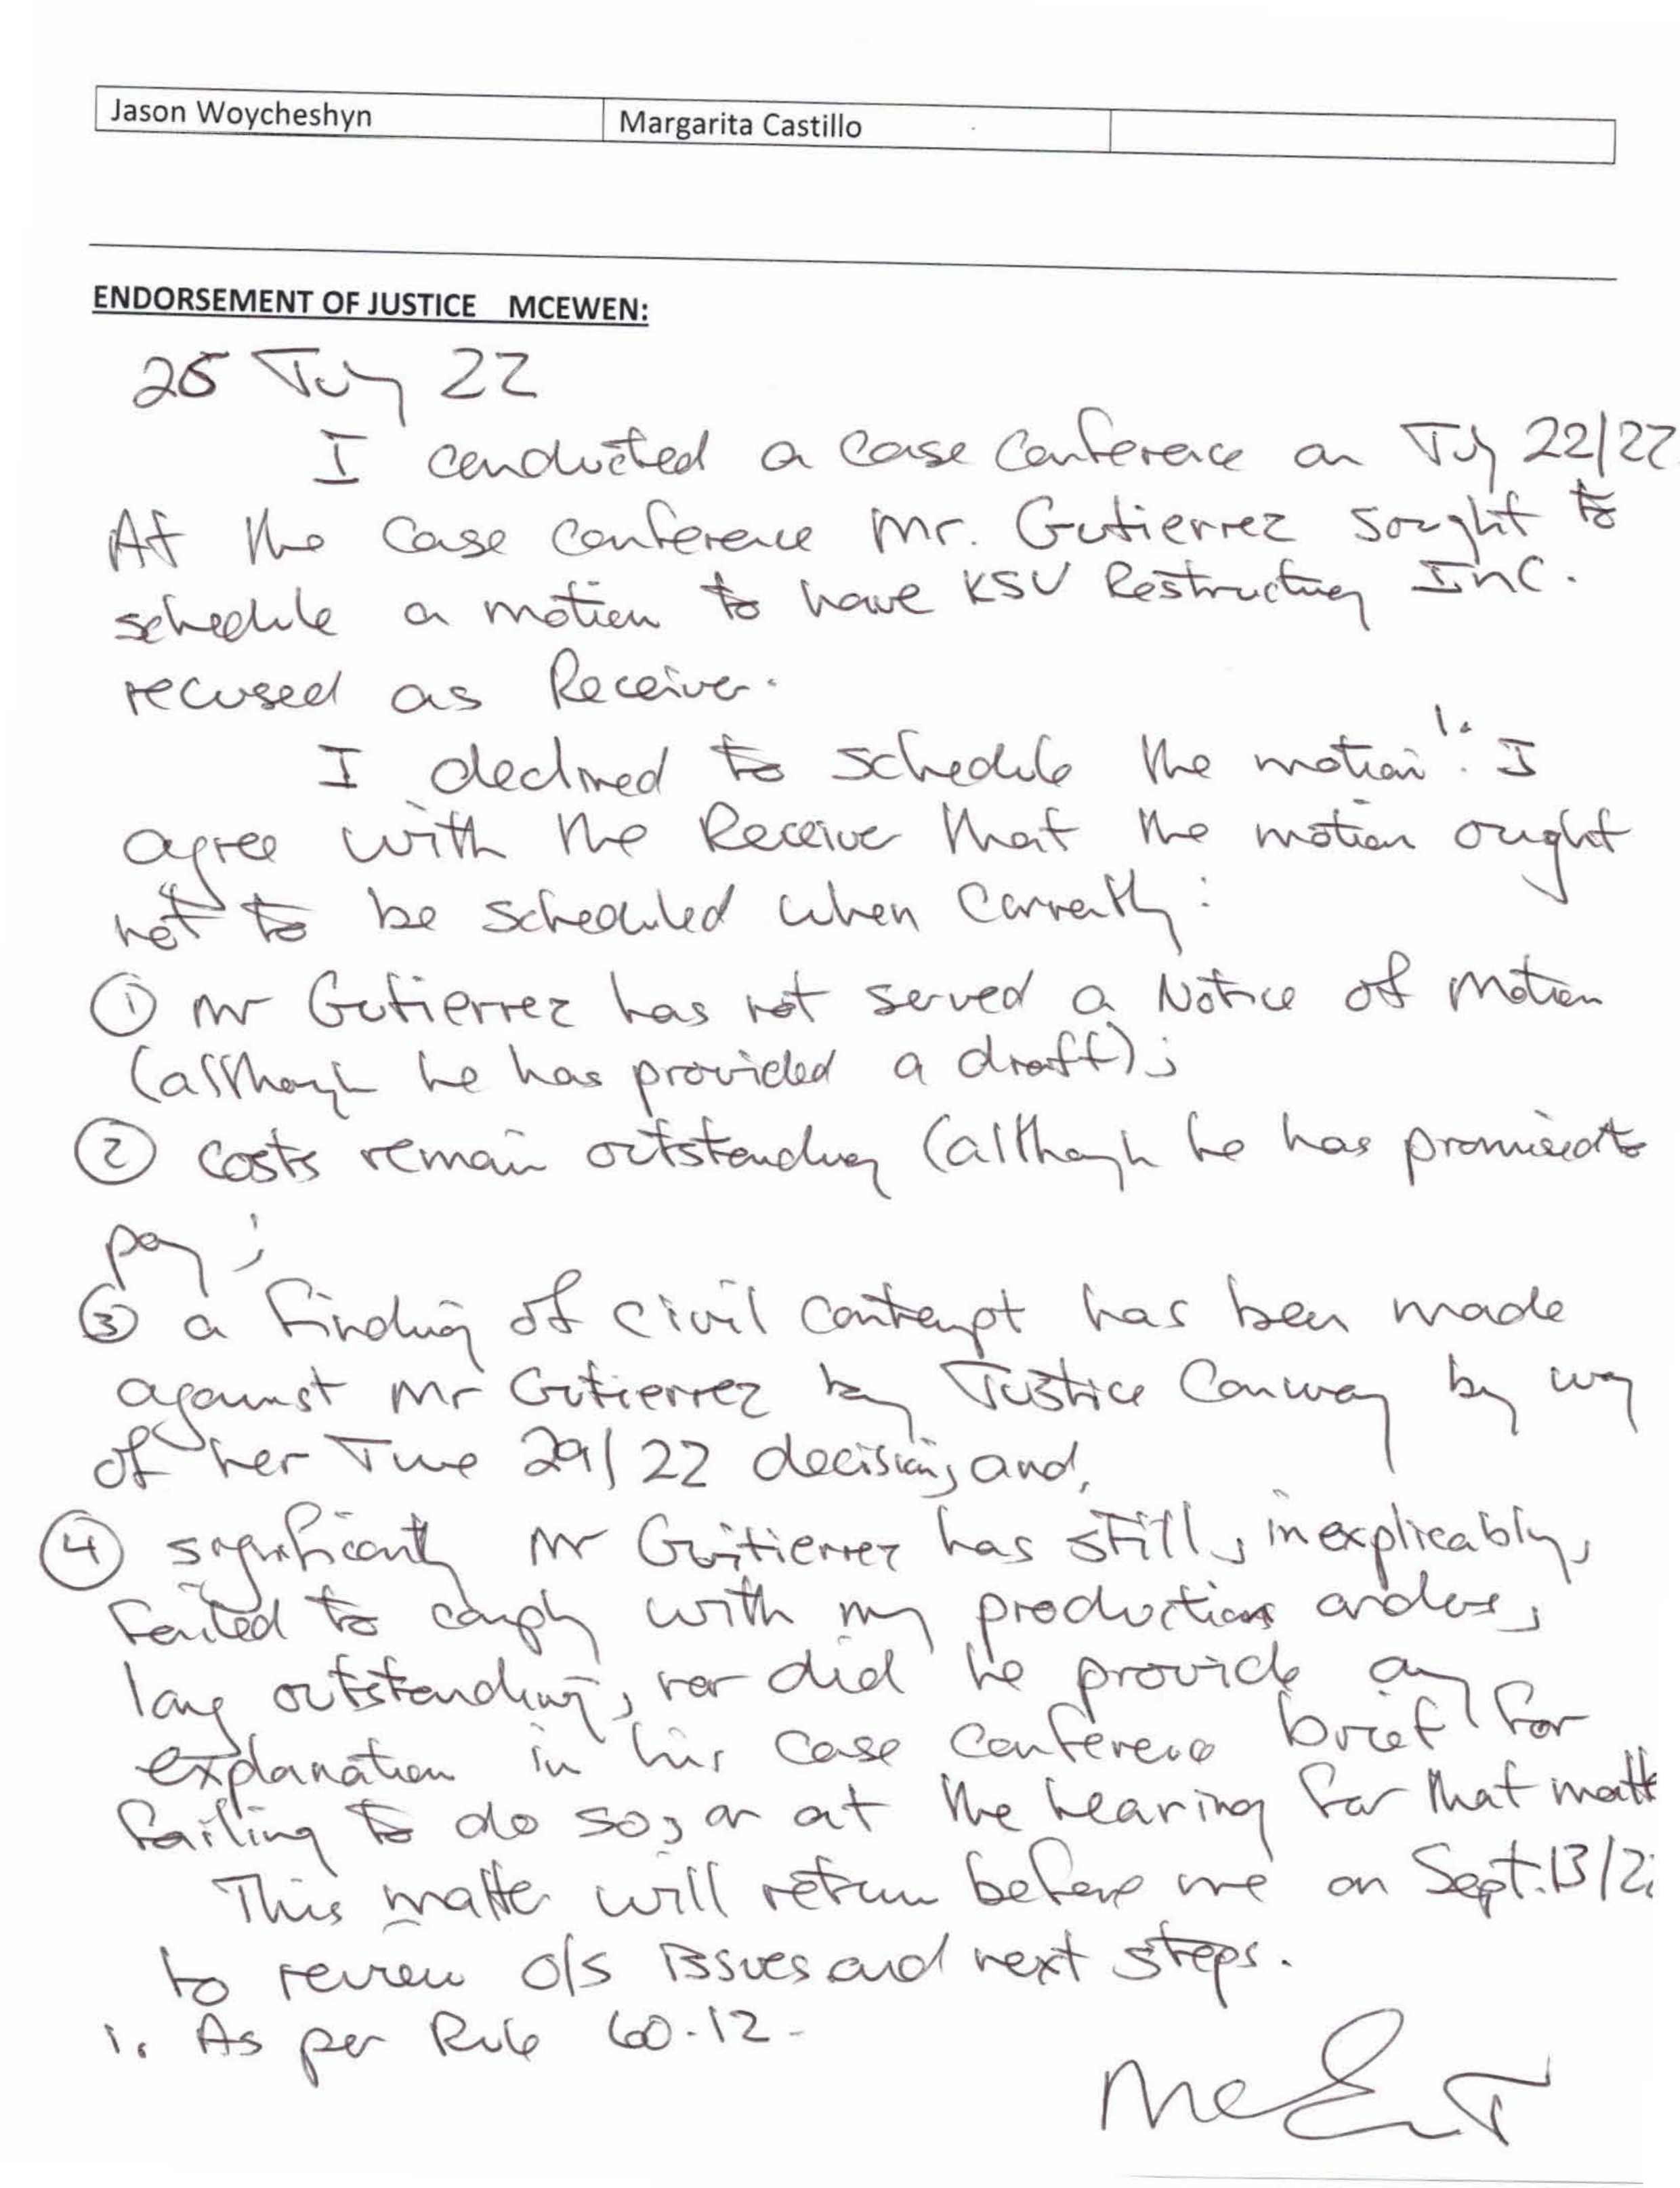 Jason Woycheshyn Margarita Castillo
ENDORSEMENT OF JUSTICE MCEWEN:
25 July 22
I conducted a case conference on July 22/22
At the case conference Mr. Gutierrez sought to
schedule a motion to have KSV Restructuring Inc.
recused as Receiver.
I declined to schedule the motion 1. . I
agree with the Receiver that the motion ought
not to be scheduled when currently:
① Mr Gutierrez has not served a Notice of Motion
(although he has provided a draft);
② costs remain outstanding (although he has promised to
pay;
③ a finding of civil contempt has been made
against Mr Gutierrez by Justice Conway by way
of her June 29/22 decision; and,
④ significantly Mr Guitierrez has still, inexplicably,
failed to comply with my productions orders,
long outstanding, nor did he provide any
explanation in his case conference brief for
failing to do so, or at the hearing for that matt
This matter will return before me on Sept. 13/2
to review o/s issues and next steps.
1. As per Rule 60.12.
McE J